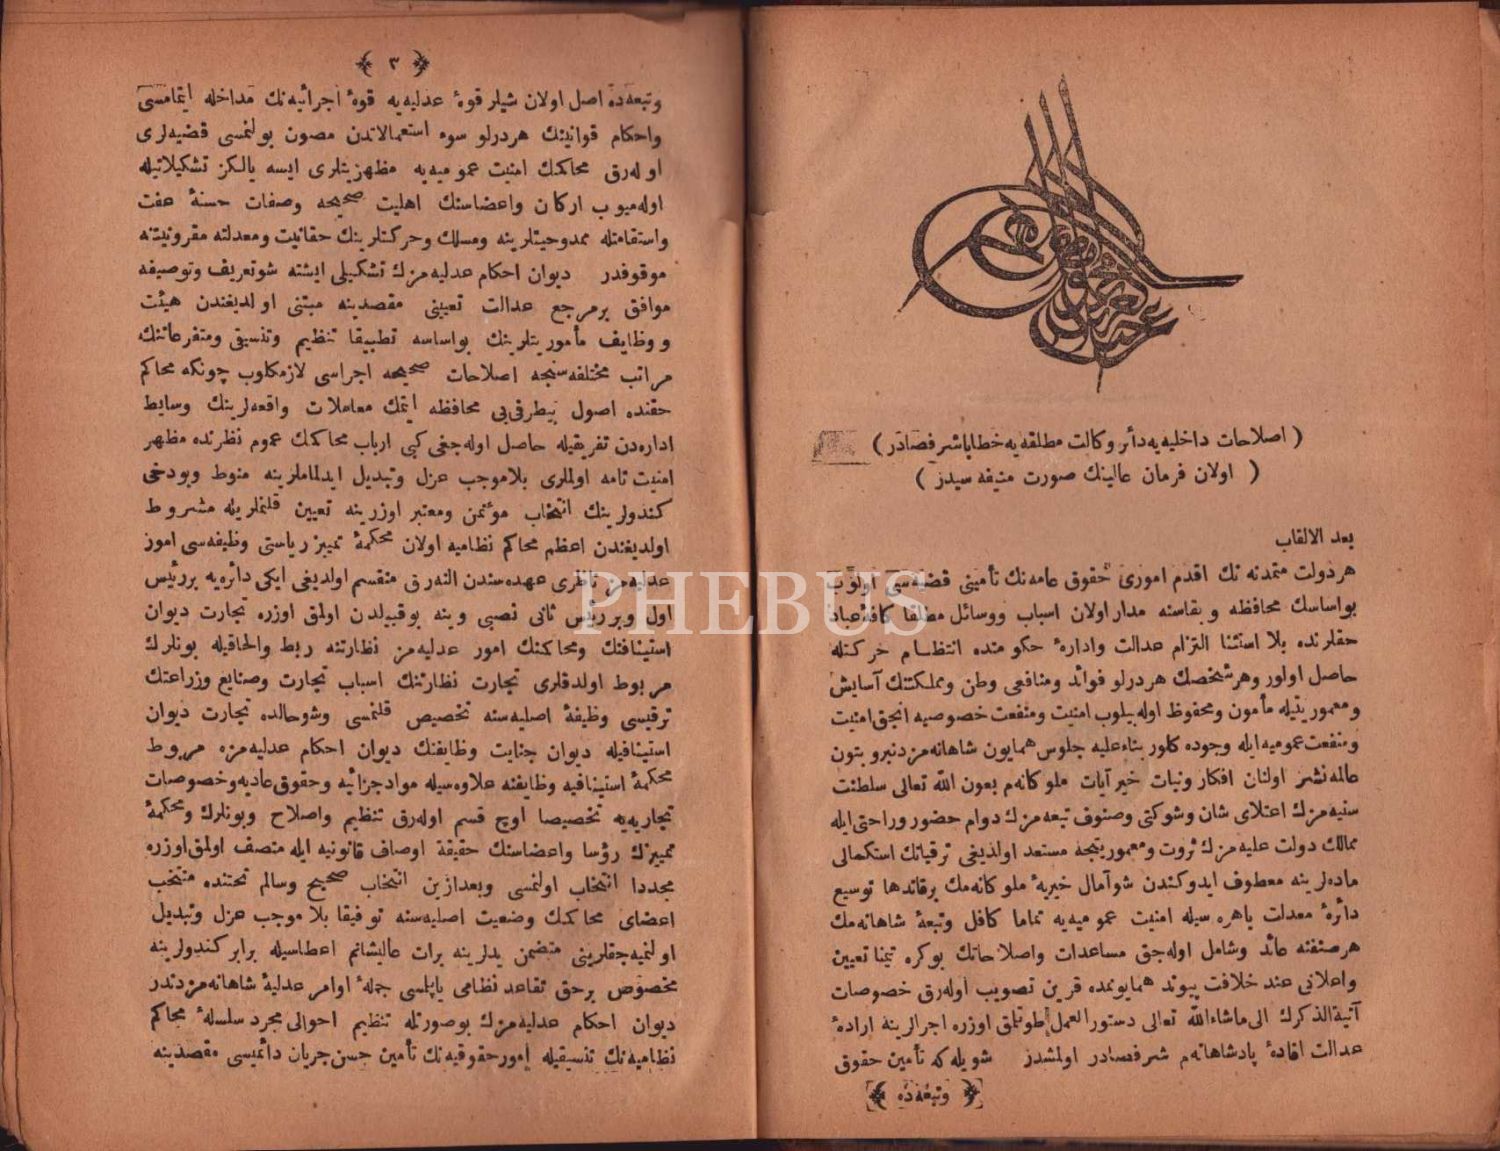 ( اصلاحات داخلیه‌یه دائر وكالت مطلقه‌یه خطابا شرفصادر )
( اولان فرمان عالینك صورت منیفه سیدر )
بعد الالقاب
هر دولت متمدنه نك اقدم اموری حقوق عامه‌نك تأمینی قضیه‌سی اولوب
بواساسك محافظه و بقاسنه مدار اولان اسباب ووسائل مطلقا كافهٔ عباد
حقلرنده بلا استثنا التزام عدالت وادارهٔ حكومتده انتظام حركتله
حاصل اولور وهر شخصك هردرلو فوائد ومنافعی وطن ومملكتك آسایش
ومعموریتیله مأمون ومحفوظ اوله‌بیلوب امنیت ومنفعت خصوصیه انجق امنیت
ومنفعت عمومیه‌ایله وجوده كلور بناءعلیه جلوس همایون شاهانه‌مزدنبرو بتون
عالمه نشر اولنان افكار ونیات خیر آیات ملوكانه‌م بعون الله تعالی سلطنت
سنیه‌مزك اعتلای شان وشوكتی وصنوف تبعه‌مزك دوام حضور وراحتی ایله
ممالك دولت علیه‌مزك ثروت ومعموریتجه مستعد اولدیغی ترقیاتك استكمالی
ماده‌لرینه معطوف ایدوكندن شو آمال خیریهٔ ملوكانه‌مك برقاندها توسیع
دائرهٔ معدلت باهره سیله امنیت عمومیه‌یه تماما كافل وتبعهٔ شاهانه‌مك
هر صنفنه عائد وشامل اوله‌جق مساعدات واصلاحاتك بوكره تیمنا تعیین
واعلانی عند خلافت پیوند همایونمده قرین تصویب اوله‌رق خصوصات
آتیة الذكرك الی ماشاءالله تعالی دستور العمل طوتلمق اوزره اجرالرینه ارادهٔ
عدالت افادهٔ پادشاهانه‌م شرفصادر اولمشدر شویله كه تأمین حقوق
وتبعه‌ده
٣
وتبعه‌ده اصل اولان شیلر قوهٔ عدلیه‌یه قوهٔ اجرائیه‌نك مداخله ایتمامسی
واحكام قوانینك هردرلو سوء استعمالاتدن مصون بولنمسی قضیه‌لری
اوله‌رق محاكمك امنیت عمومیه‌یه مظهریتلری ایسه یالكز تشكیلاتیله
اوله‌میوب اركان واعضاسنك اهلیت صحیحه وصفات حسنهٔ عفت
واستقامتله ممدوحیتلرینه ومسلك وحركتلرینك حقانیت ومعدلته مقرونیتنه
موقوفدر دیوان احكام عدلیه‌مزك تشكیلی ایشته شو تعریف وتوصیفه
موافق برمرجع عدالت تعیینی مقصدینه مبتنی اولدیغندن هیئت
ووظایف مأموریتلرینك بواساسه تطبیقا تنظیم وتنسیقی ومتفرعاتنك
مراتب مختلفه‌سنجه اصلاحات صحیحه اجراسی لازمكلوب چونكه محاكم
حقنده اصول بیطرفی‌یی محافظه ایتمك معاملات واقعه‌لرینك وسایط
اداره‌دن تفریقیله حاصل اوله‌جغی كبی ارباب محاكمك عموم نظرنده مظهر
امنیت تامه اولملری بلاموجب عزل وتبدیل ایدلماملرینه منوط وبودخی
كندولرینك انتخاب مؤتمن ومعتبر اوزرینه تعیین قلنملریله مشروط
اولدیغندن اعظم محاكم نظامیه اولان محكمهٔ تمییز ریاستی وظیفه‌سی امور
عدلیه‌مز ناظری عهده‌سندن النه‌رق منقسم اولدیغی ایكی دائره‌یه بررئیس
اول وبر رئیس ثانی نصبی وینه بوقبیلدن اولمق اوزره تجارت دیوان
استینافنك ومحاكمنك امور عدلیه‌مز نظارتنه ربط والحاقیله بونلرك
مربوط اولدقلری تجارت نظارتنك اسباب تجارت وصنایع وزراعتك
ترقیسی وظیفهٔ اصلیه‌سنه تخصیص قلنمسی وشو حالده تجارت دیوان
استینافیله دیوان جنایت وظایفنك دیوان احكام عدلیه‌مزه مربوط
محكمهٔ استینافیه وظایفنه علاوه‌سیله مواد جزائیه وحقوق عادیه وخصوصات
تجاریه‌یه تخصیصا اوچ قسم اوله‌رق تنظیم واصلاح وبونلرك ومحكمهٔ
تمییزك رؤسا واعضاسنك حقیقة اوصاف قانونیه ایله متصف اولمق اوزره
مجددا انتخاب اولنمسی وبعدازین انتخاب صحیح وسالم تحتنده منتخب
اعضای محاكمك وضعیت اصلیه‌سنه توفیقا بلا موجب عزل وتبدیل
اولنمیه‌جقلرینی متضمن یدلرینه برات عالیشانم اعطاسیله برابر كندولرینه
مخصوص برحق تقاعد نظامی یاپلمسی جملهٔ اوامر عدلیهٔ شاهانه‌مزدندر
دیوان احكام عدلیه‌مزك بوصورتله تنظیم احوالی مجرد سلسلهٔ محاكم
نظامیه‌نك تنسیقیله امور حقوقیه‌نك تأمین حسن جریان دائمیسی مقصدینه
PHEBUS